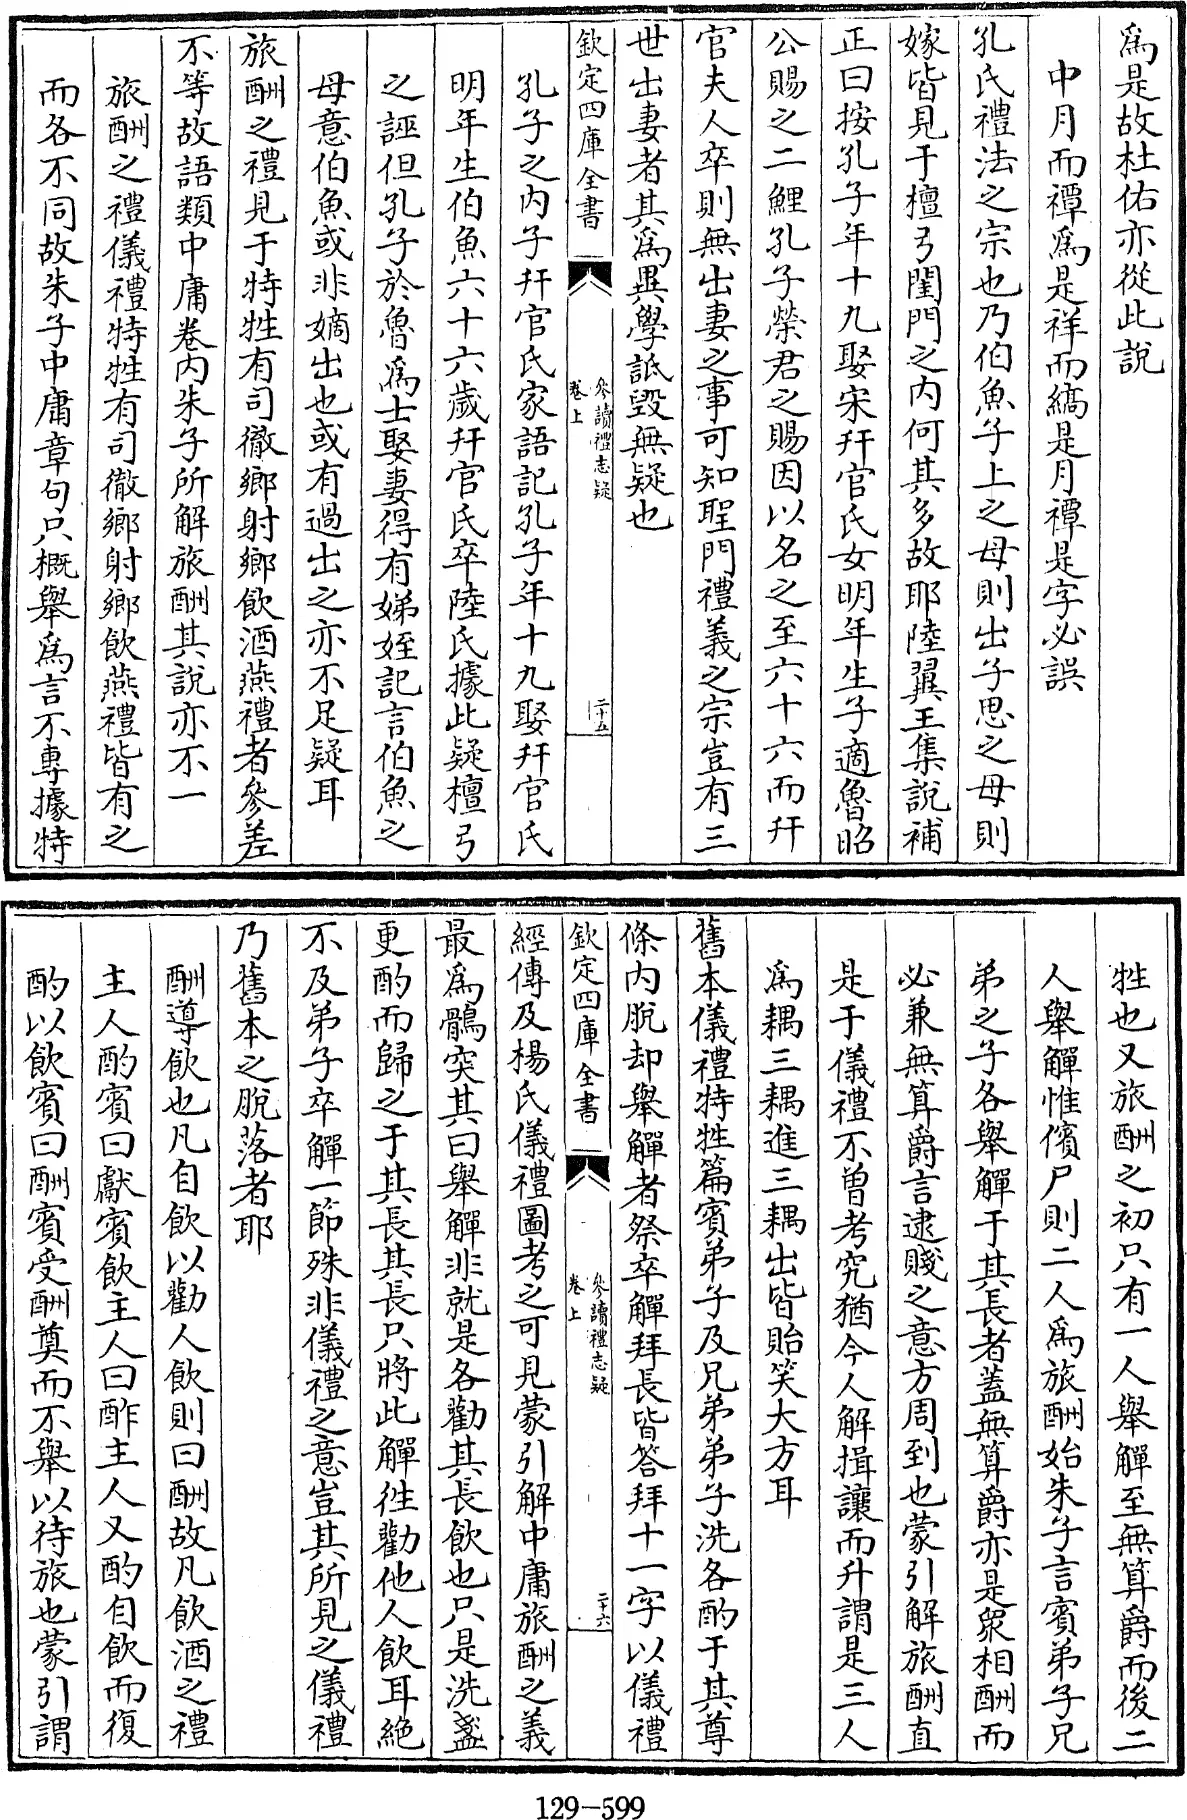 爲是故杜佑亦從此說
中月而禫爲是祥而縞是月禫是字必誤
孔氏禮法之宗也乃伯魚子上之母則出子思之母則
嫁皆見于檀弓閨門之内何其多故耶陸翼王集說補
正曰按孔子年十九娶宋幵官氏女明年生子適魯昭
公賜之二鯉孔子榮君之賜因以名之至六十六而幵
官夫人卒則無出妻之事可知聖門禮義之宗豈有三
世出妻者其爲異學詆毀無疑也
欽定四庫全書
參讀禮志疑
卷上
二十五
孔子之内子幵官氏家語記孔子年十九娶幵官氏
明年生伯魚六十六歲幵官氏卒陸氏據此疑檀弓
之誣但孔子於魯爲士娶妻得有娣姪記言伯魚之
母意伯魚或非嫡出也或有過出之亦不足疑耳
旅酬之禮見于特牲有司徹鄉射鄉飲酒燕禮者參差
不等故語類中庸卷内朱子所解旅酬其說亦不一
旅酬之禮儀禮特牲有司徹鄉射鄉飲燕禮皆有之
而各不同故朱子中庸章句只概舉爲言不專據特
牲也又旅酬之初只有一人舉觶至無算爵而後二
人舉觶惟儐尸則二人爲旅酬始朱子言賓弟子兄
弟之子各舉觶于其長者蓋無算爵亦是衆相酬而
必兼無算爵言逮賤之意方周到也蒙引解旅酬直
是于儀禮不曾考究猶今人解揖讓而升謂是三人
爲耦三耦進三耦出皆貽笑大方耳
舊本儀禮特牲篇賓弟子及兄弟弟子洗各酌于其尊
條内脫却舉觶者祭卒觶拜長皆答拜十一字以儀禮
欽定四庫全書
參讀禮志疑
卷上
二十六
經傳及楊氏儀禮圖考之可見蒙引解中庸旅酬之義
最爲鶻突其曰舉觶非就是各勸其長飲也只是洗盞
更酌而歸之于其長其長只將此觶徃勸他人飲耳絕
不及弟子卒觶一節殊非儀禮之意豈其所見之儀禮
乃舊本之脫落者耶
酬導飲也凡自飲以勸人飲則曰酬故凡飲酒之禮
主人酌賓曰獻賓飲主人曰酢主人又酌自飲而復
酌以飲賓曰酬賓受酬奠而不舉以待旅也蒙引謂
129-599